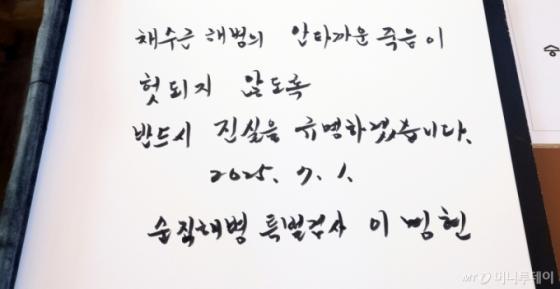 채수근 해병의 안타까운 죽음이
헛되지 않도록
반드시 진실을 규명하겠습니다.
2025. 7. 1.
순직해병 특별검사 이명현
승
MT 머니투데이